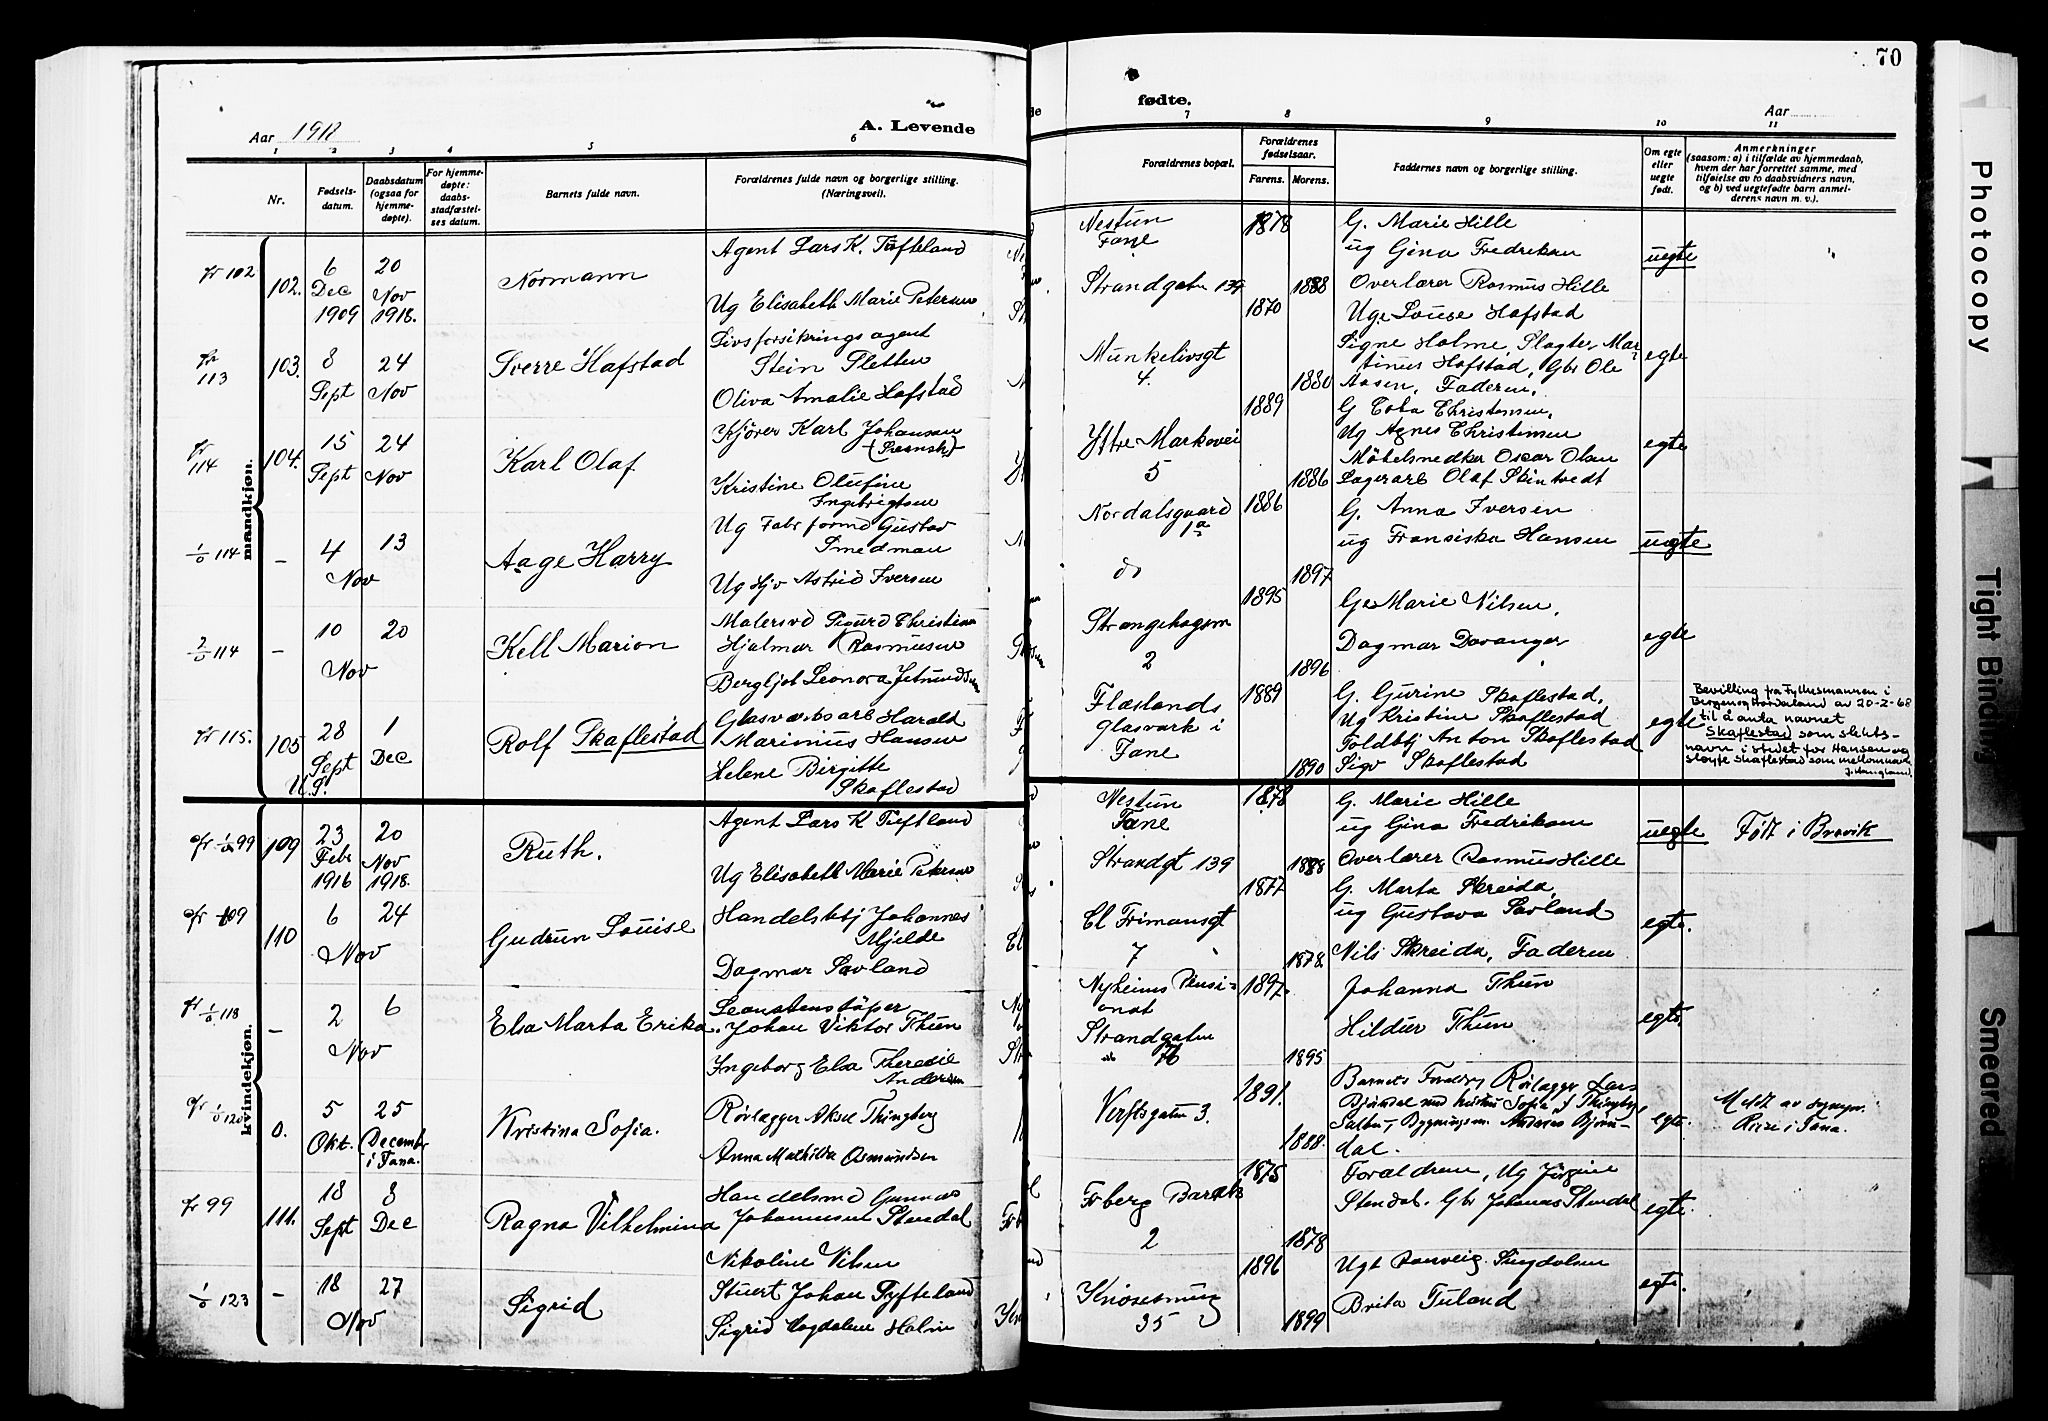 70
Aar 1918
A. Levende
fødte.
Aar
1 2 3 4 5 6 7 8 9 10 11
Nr.
Fødsels-
datum.
Daabsdatum
(ogsaa for
hjemme-
døpte).
For hjemme-
døpte:
daabs-
stadfæstel-
ses datum.
Barnets fulde navn.
Forældrenes fulde navn og borgerlige stilling.
(Næringsvei).
Forældrenes bopæl.
Forældrenes
fødselsaar.
Farens. Morens.
Faddernes navn og borgerlige stilling.
Om egte
eller
uegte
født.
Anmerkninger
(saasom: a) i tilfælde av hjemmedaab,
hvem der har forrettet samme, med
tilføielse av to daabsvidners navn,
og b) ved uegtefødte barn anmel-
derens navn m. v.).
mandkjøn.
fr 102
102.
6
Dec
1909
20
Nov
1918.
Normann
Agent Lars K. Tufteland
Ug Elisabeth Marie Petersen
Nestun
Fane
Strandgaten 139
1878
1888
G. Marie Hille
ug Gina Fredriksen
Overlærer Rasmus Hille
uegte
fr
113
103.
8
Sept
24
Nov
Sverre Hafstad
Livsforsikrings agent
Stein Sletten
Oliva Amalie Hafstad
Munkelivsgt
4.
1870
1880
Uge Louise Hafstad
Signe Holme, Slagter Mar-
tinus Hafstad, Gbr Ole
Aasen, Faderen,
egte
fr
114
104.
15
Sept
24
Nov
Karl Olaf
Kjører Karl Johansen
(Svensk)
Kristine Olufine
Ingebrigtsen
Ytre Markevei
5
1889
1886
G Tota Christensen,
Ug Agnes Christensen
Møbelsnedker Oscar Olsen
Lagerarb Olaf Skintvedt
egte
1/0 114
-
4
Nov
13
Aage Harry
Ug Fabr formd Gustav
Smedman
Ug Hjv Astrid Iversen
Nordalsgaard
1a
do
1886
1897
G. Anna Iversen
ug Fransiska Hansen
uegte
2/0 114
-
10
Nov
20
Kell Marion
Malersvd Sigurd Christian
Hjalmar Rasmusen
Bergljot Leonora Jetmundsen
Strangehagen
2
1895
1896
Ge Marie Nilsen,
Dagmar Davanger
egte
fr 115.
105
U.S.
28
Sept
1
Dec
Rolf Skaflestad
Glasværksarb Harald
Marinius Hansen
Helene Birgitte
Skaflestad
Flæslands
glasverk i
Fane
1889
1890
G. Gurine Skaflestad,
Ug Kristine Skaflestad
Toldbtj Anton Skaflestad
Sigv Skaflestad
egte
Bevilling fra Fylkesmannen i
Bergen og Hordaland av 20-2-68
til å anta navnet
Skaflestad som slekts-
navn i stedet for Hansen og
sløyfe Skaflestad som mellomnavn
J. Haugland.
kvindekjøn.
fr 1/0 99
109
23
Febr
1916
20
Nov
1918.
Ruth.
Agent Lars K Tufteland
Ug Elisabeth Marie Petersen
Nestun
Fane
Strandgt 139
1878
1888
G. Marie Hille
ug Gina Fredriksen
Overlærer Rasmus Hille
uegte
Født i Brevik
fr 109
110
6
Nov
24
Gudrun Louise
Handelsbtj Johannes
Mjelde
Dagmar Savland
Cl Frimansgt
7
1877
1878.
G. Marta Skreida,
ug Gustava Savland
Nils Skreida, Faderen
egte.
fr 1/0 118
-
2
Nov
6
Elsa Marta Erika.
Johan Viktor Thun
Ingeborg Elsa Theresie
Andersen
Nyheims Pensi-
onat
Strandgaten
1897.
1895
Johanna Thun
Hildur Thun
egte
fr 1/0 120
0.
5
Okt.
25
December
i Tana.
Kristina Sofia.
Rørlægger Aksel Thingberg
Anna Mathilda Osmundsen
Verftsgaten 3.
1891.
1888.
Barnets Forældre, Rørlægger Lars
Bjørkdal med hustru Sofia, J Thingberg,
Bygningsm. Andreas Bjørn-
dal.
egte.
Meldt av sognepr.
Riise i Tana.
fr 99
111.
18
Sept
8
Dec
Ragna Vilhelmina
Handelsmd Gunnar
Johannesen Stendal
Nikoline Nilsen
Frberg Barak
2
1875
1878
Forældrene, Ug Jørgine
Stendal. Gbr Johannes Stendal
egte.
1/0 123
-
18
Nov
27
Sigrid
Stuert Johan Tyfteland
Sigrid Magdalene Holm
Knøsesmug
35
1896
1899
Ugt Ranveig Singdalsen
Brita Tuland
egte.
Photocopy
Tight Binding
Smeared